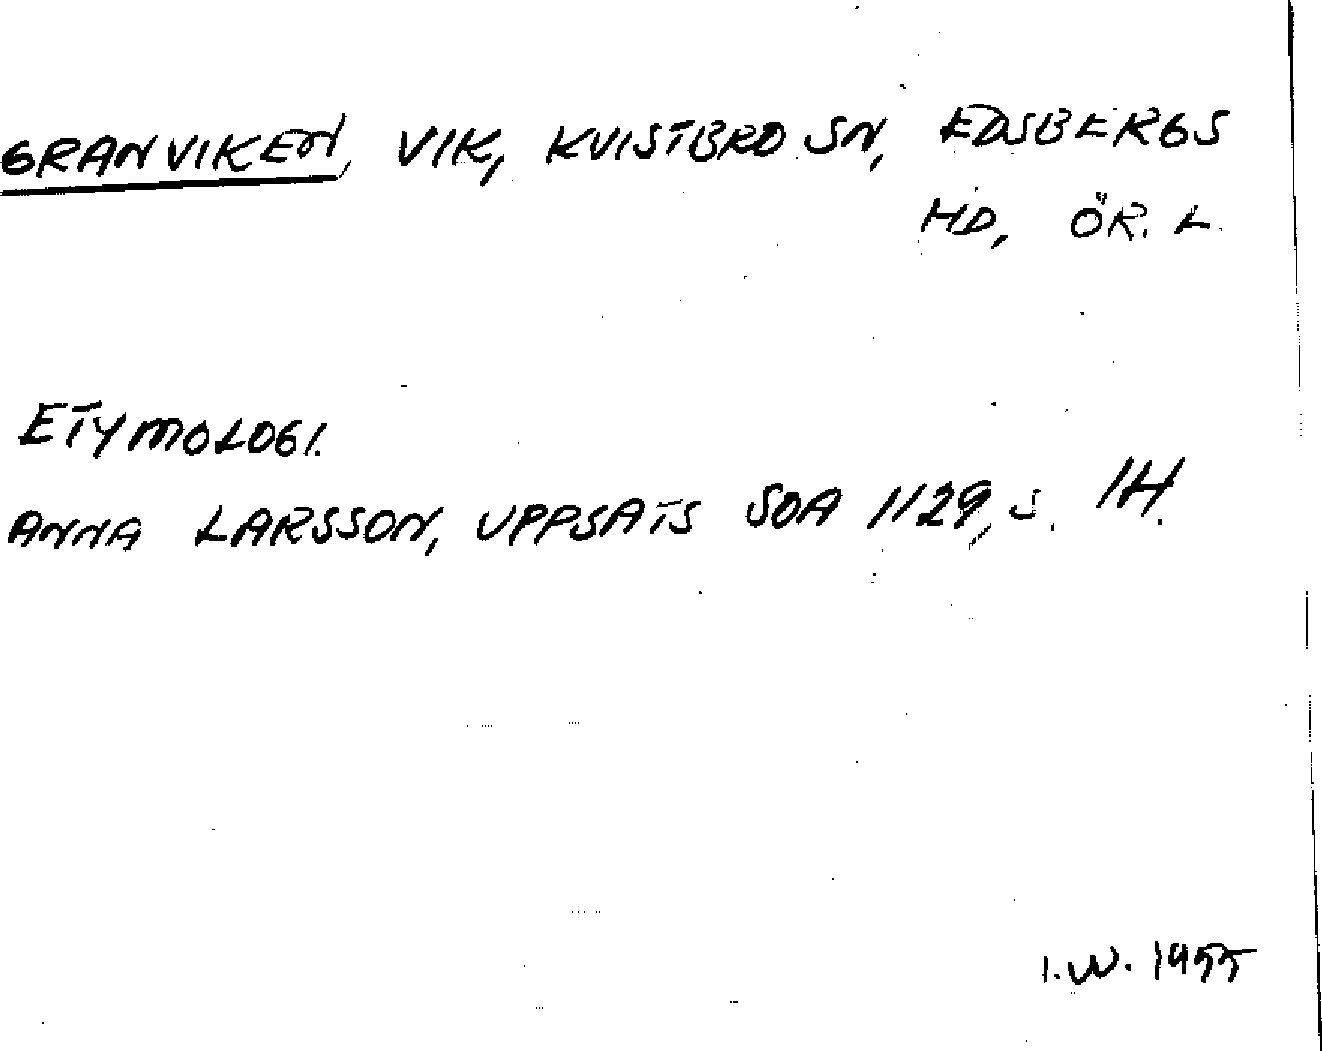 GRANVIKEN, VIK, KVISTBRO SN, EDSBERGS
HD, ÖR. L.
ETYMOLOGI.
ANNA LARSSON, UPPSATS SOA 1129, s. 14.
I.W. 1955